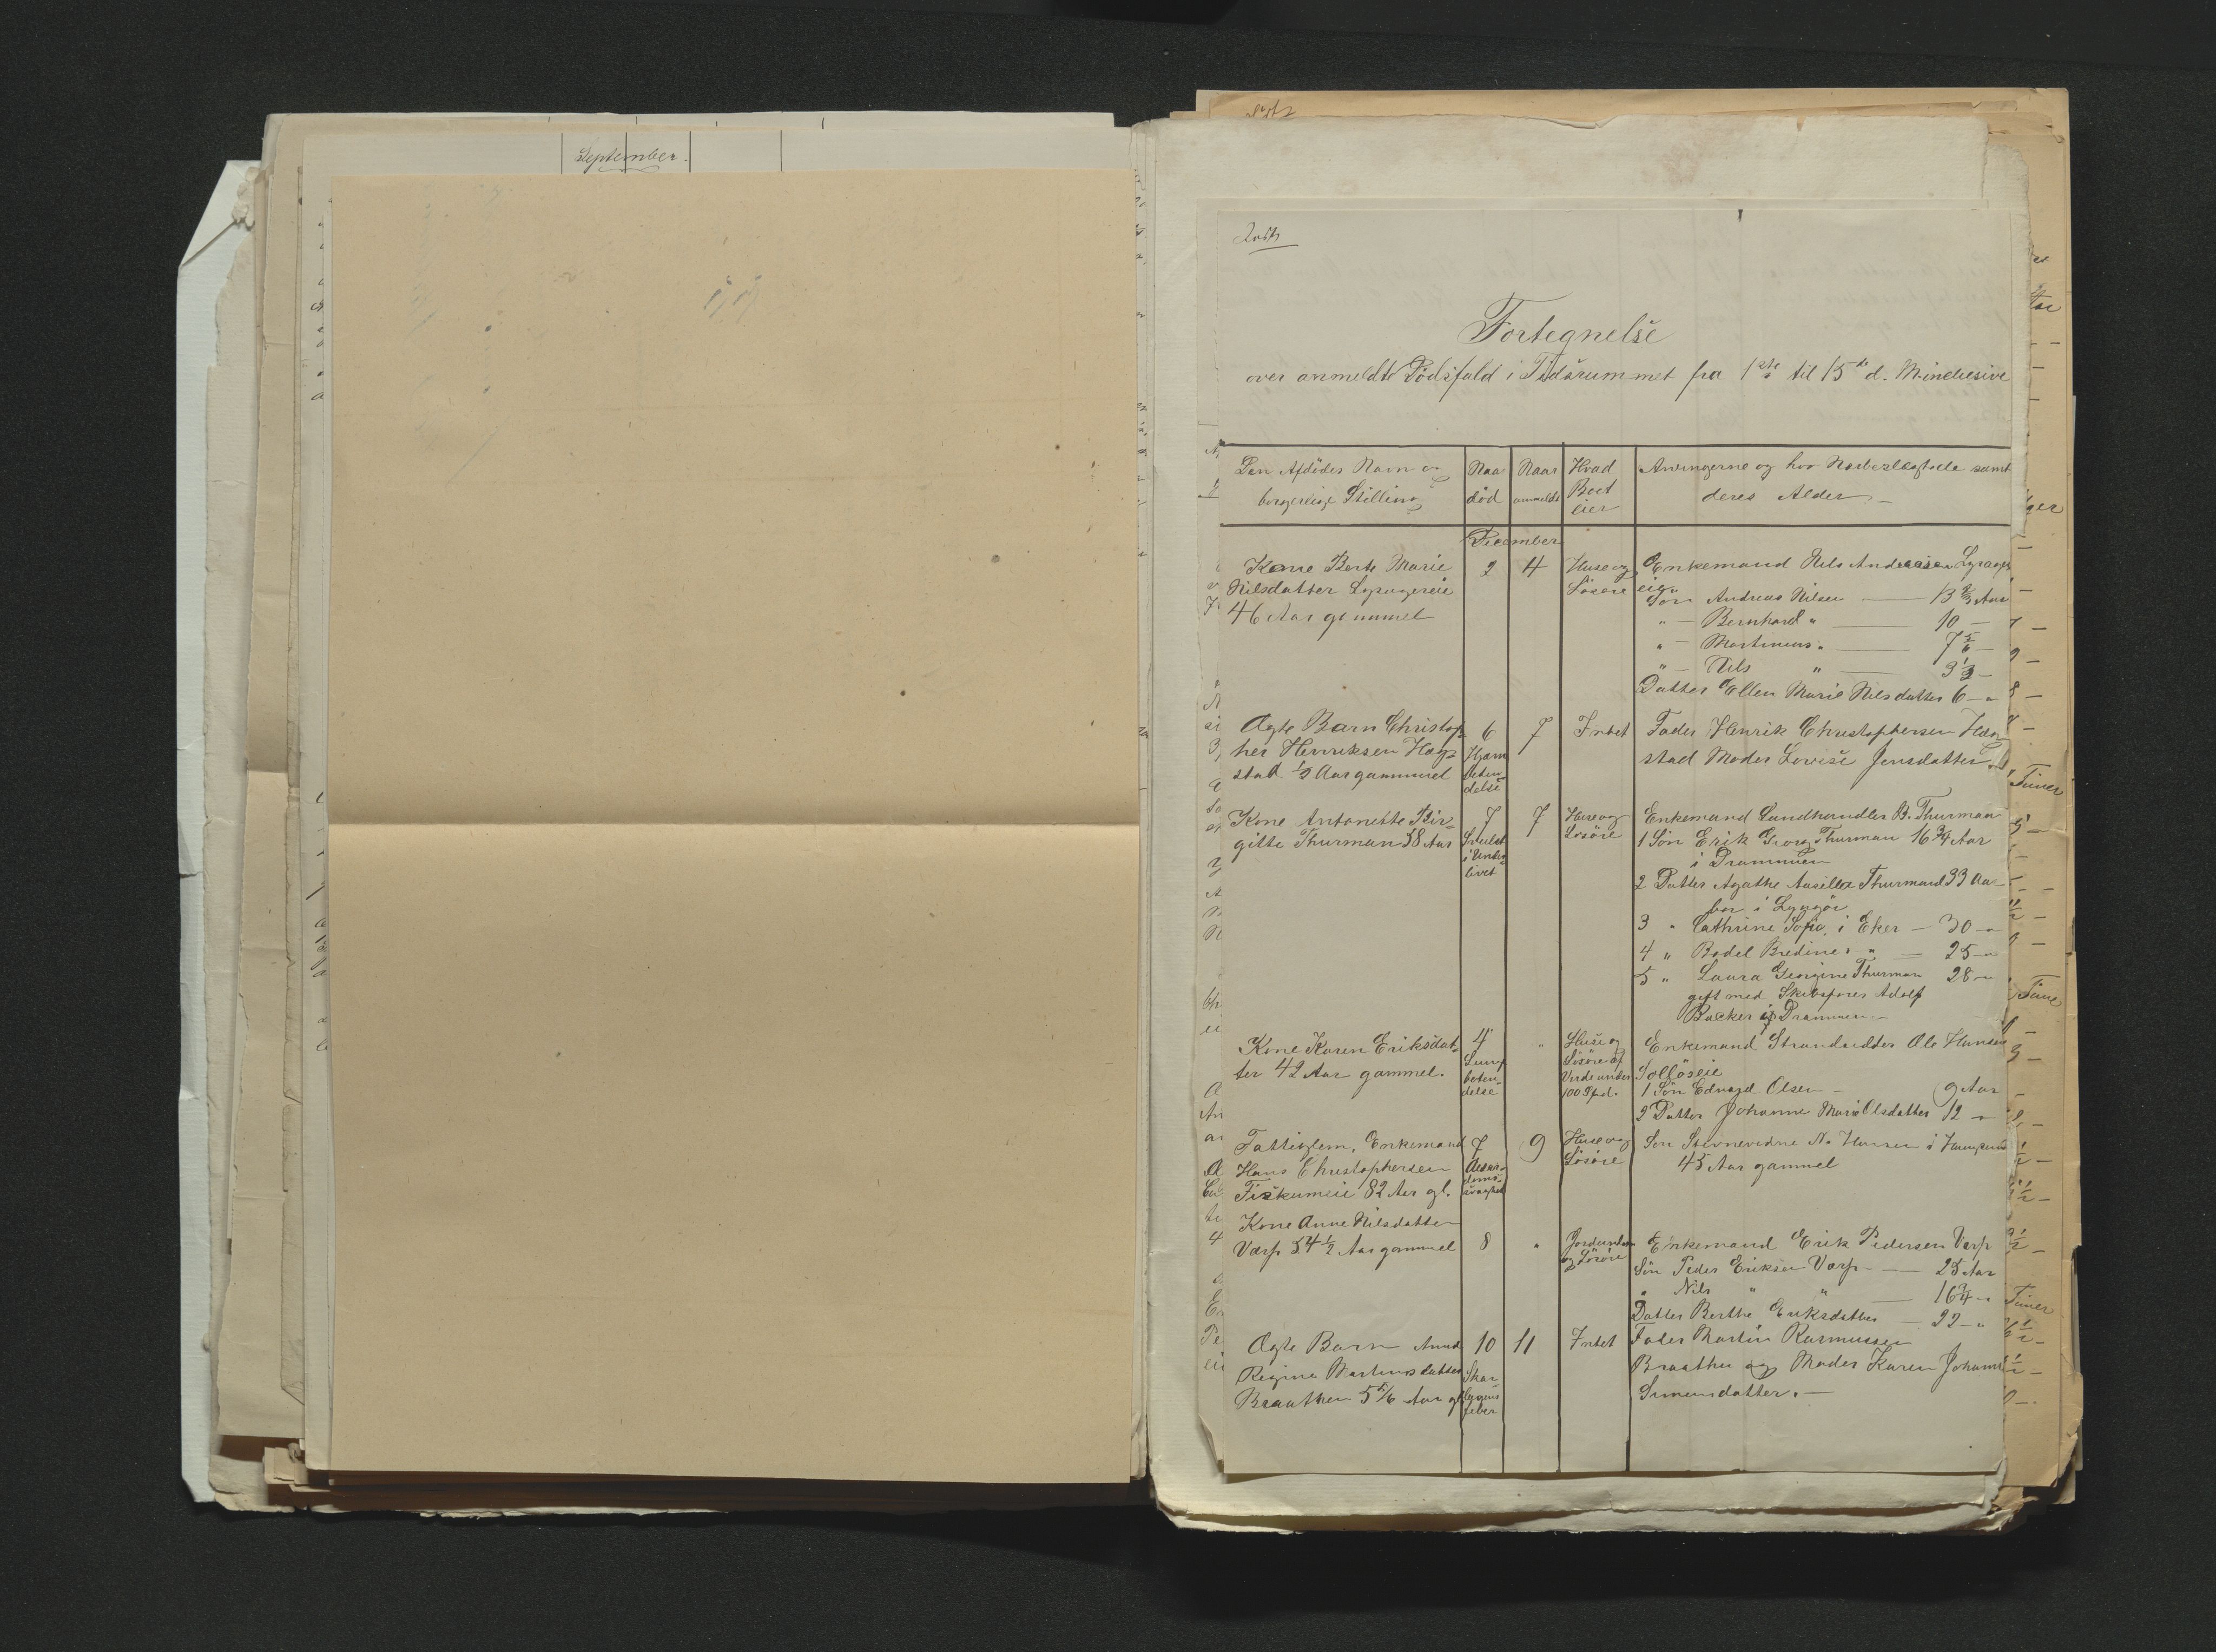 September.
Fortegnelse
over anmeldte Dödsfald i Tidsrummet fra 1ste til 15de d. M. inclusive
Den Afdödes Navn og
borgerlige Stilling
Naar
död
Naar
anmeldt
Hvad
Boet
eier
Arvingerne og hvor Nærbeslægtede samt
deres Alder.
December
Kone Berte Marie
Nilsdatter
46 Aar gammel
2
4
Huse og
Lösöre
Enkemand Nils Andreasen
eie.
Sön Andreas Nilsen — 13 2/3 Aar
" — Bernhard " — 10 —
" — Martinius " — 7 5/6 —
" — Nils " — 3 1/3 —
Datter Ellen Marie Nilsdatter 6 — "
Ægte Barn Christop-
her Henriksen Hog-
stad 1/2 Aar gammel
6
7
Intet
Fader Henrik Christophersen
stad Moder Lovise Jensdatter
Kone Antonette Bir-
gitte Thurman 58 Aar
7
i Under-
livet
7
Huse og
Lösöre
Enkemand Landhandler B. Thurman
1 Sön Erik Georg Thurman 16 3/4 Aar
i Drammen
2 Datter Agathe Thurman 33 Aar
bor i Lyngör
3 " Cathrine Sofie, i Eker — 30 — "
4 " Bodel Bredine " — 25 — "
5 " Laura Georgine Thurman 28 — "
gift med Skibsförer Adolf
Backer i Drammen. —
Kone Karen Eriksdat-
ter 42 Aar gammel.
4
Lung
beten-
delse
"
Huse og
Lösöre af
Værdi under
100 Spd.
Enkemand Strandsidder Ole Hansen
Solløseie
1 Sön Edvard Olsen — 9 Aar
2 Datter Johanne Marie Olsdatter 12 — "
Fattiglem, Enkemand
Hans Christophersen
Fiskumeie 82 Aar gl.
7
Alder-
doms-
svaghed
9
Huse og
Lösöre
Sön Stevnevidne N. Hansen i
45 Aar gammel
Kone Anne Nilsdatter
Varp 54 1/2 Aar gammel
8
"
og Lösöre
Enkemand Erik Pedersen Varp
Sön Peder Eriksen Varp — 25 Aar
" Nils " " — 16 3/4 — "
Datter Berthe Eriksdatter — 22 — "
Ægte Barn Anna
Regine Martinsdatter
Braathen 5 5/6 Aar gl.
10
Skar-
lagens
feber
11
Intet
Fader Martin Rasmussen
Braathen og Moder Karen Johanne
Simensdatter. —